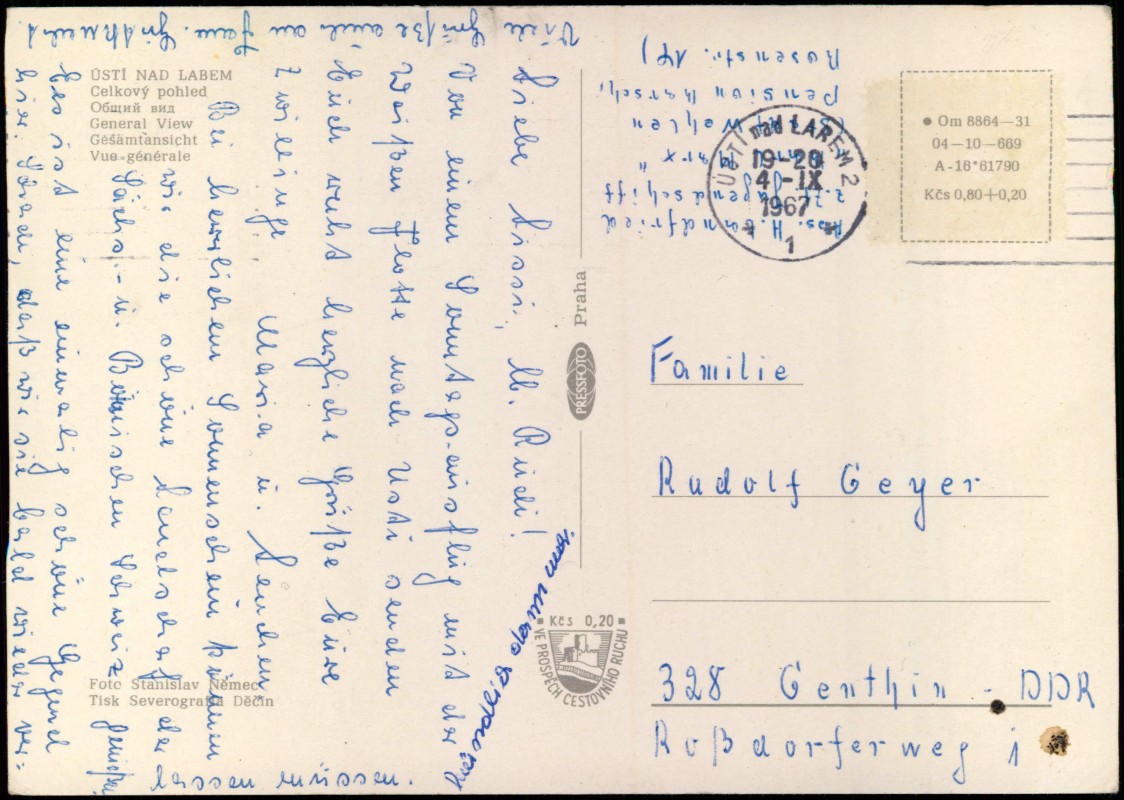 ÚSTÍ NAD LABEM
Celkový pohled
Общий вид
General View
Gesamtansicht
Vue générale
Liebe Sissi, lb. Rudi!
Von einem Sonntagsausflug mit der
Weißen Flotte nach Usti senden
Euch recht herzliche Grüße Eure
Zwillinge
Maria u. Lenchen.
Bei herrlichem Sonnenschein können
wir die schöne Landschaft der
Sächs.- u. Böhmischen Schweiz genießen.
Es ist eine einmalig schöne Gegend
hier. Schade, daß wir sie bald wieder ver-
lassen müssen.
Viele Grüße auch an Fam.
Foto Stanislav Němec
Tisk Severografia Děčín
PRESSFOTO Praha
Kčs 0,20
VE PROSPĚCH CESTOVNÍHO RUCHU
Abs. H. Landfried
z. Zt.
Wehlen
Pension
Rosenstr. 14)
ÚSTÍ nad LABEM 2
19-20
4-IX
1967
1
Om 8864—31
04—10—669
A-16*61790
Kčs 0,80+0,20
Familie
Rudolf Geyer
328 Genthin - DDR
Roßdorferweg 1